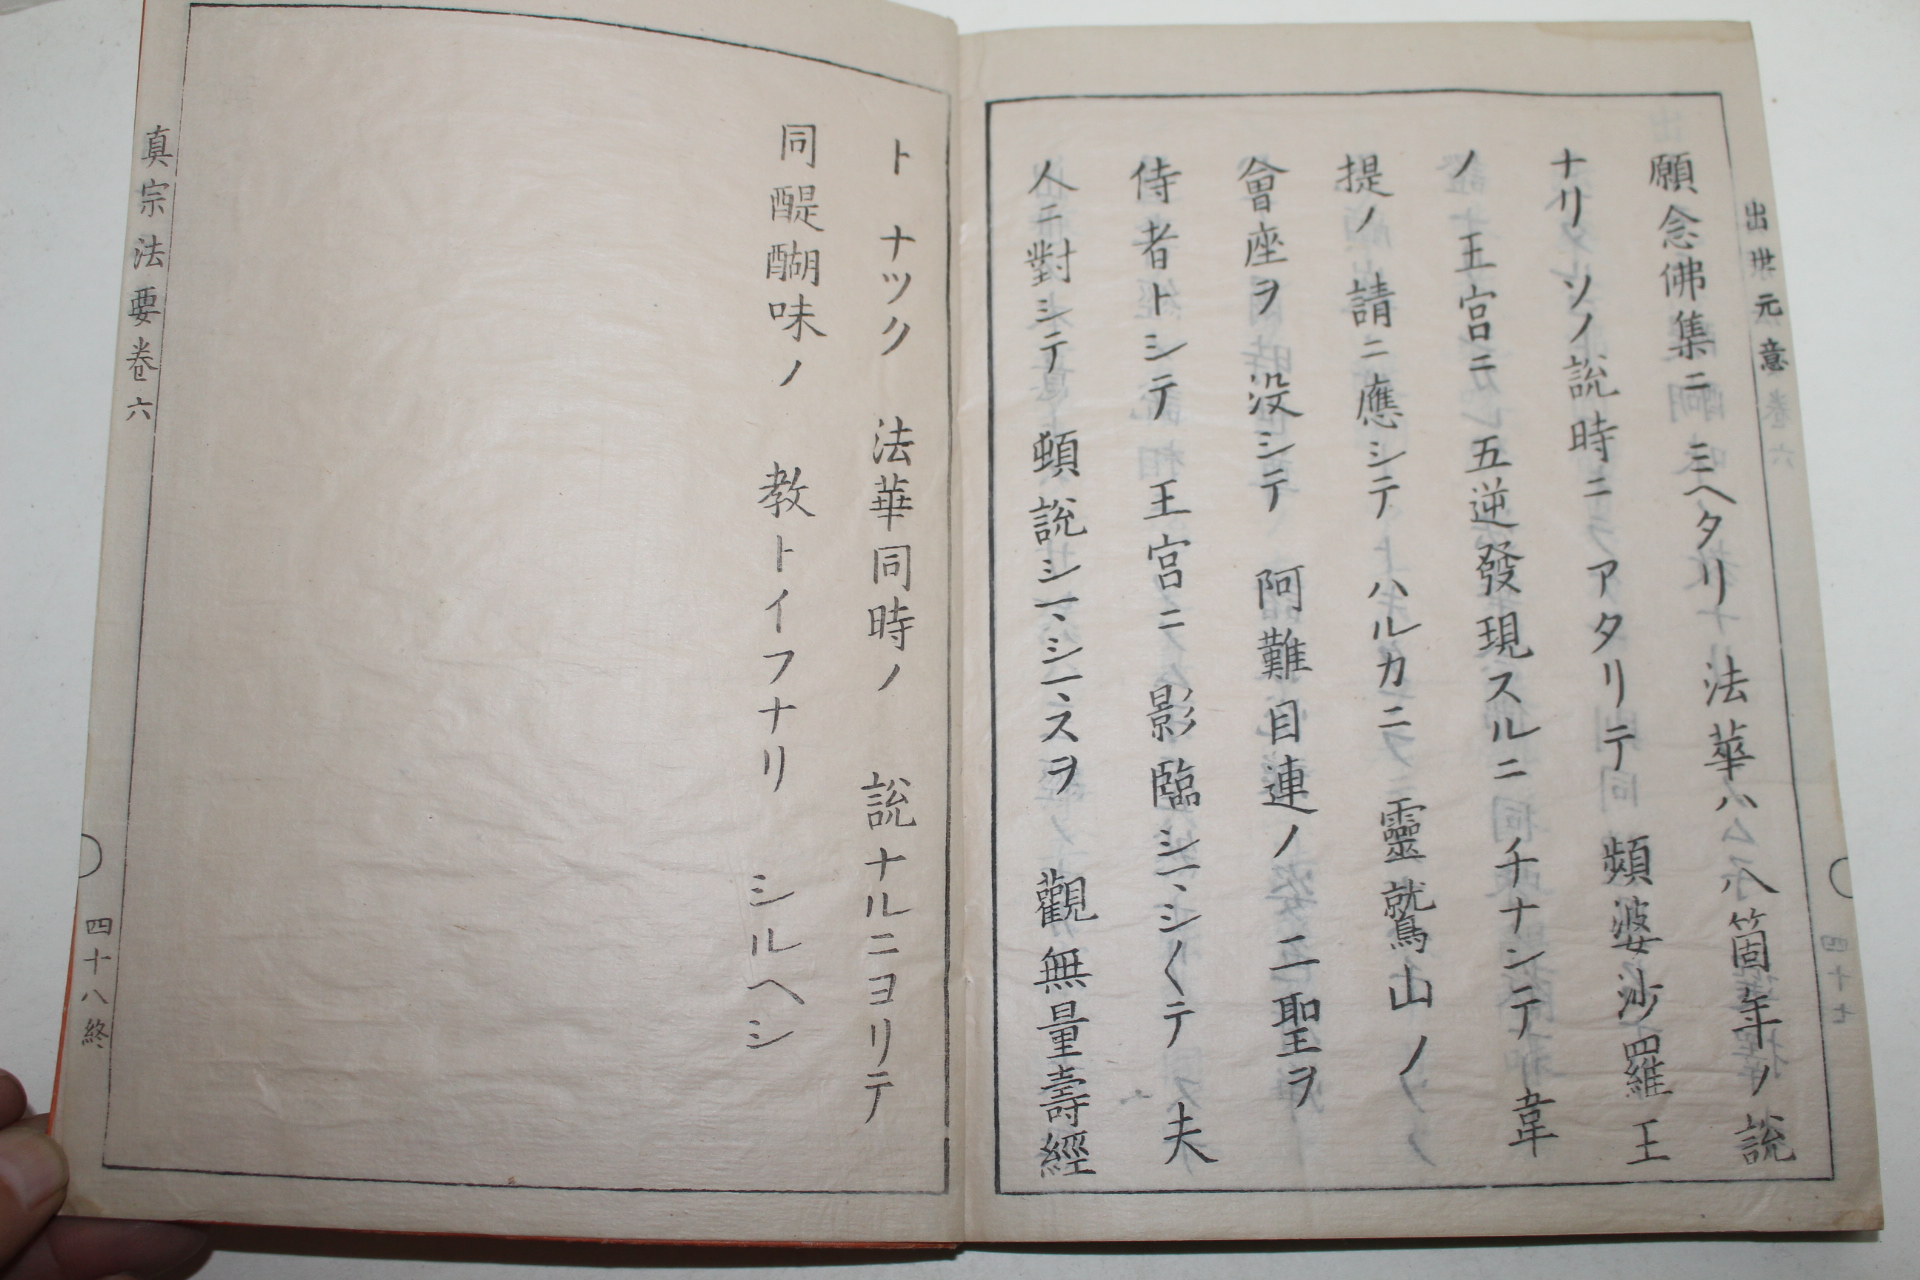 出世元意
願念佛集ニミヘタリ法華ハ八箇年ノ說
ナリソノ說時ニアタリテ頻婆沙羅王
ノ王宮ニ五逆發現スルニチナンテ韋
提ノ請ニ應シテハルカニ靈鷲山ノ
會座ヲ没シテ阿難目連ノ二聖ヲ
侍者トシテ王宮ニ影臨シマシ〱テ夫
人ニ對シテ頓說シマシマスヲ觀無量壽經
トナツク法華同時ノ說ナルニヨリテ
同醍醐味ノ教トイフナリシルヘシ
真宗法要卷六
四十八終